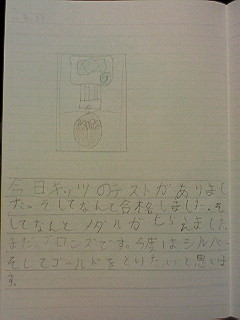 今日キッツのテストがありまし
た。そしてなんと合格しました。そ
してなんとメダルがもらえました
まだブロンズです。今度はシルバー
そしてゴールドをとりたいと思いま
す。